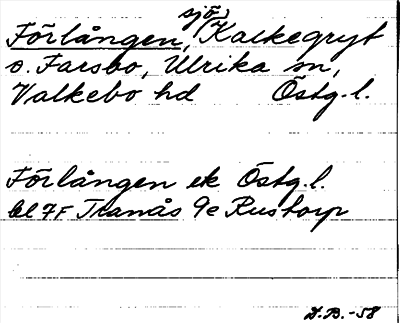 Förlången, sjö, Kalkegryt
o. Farsbo, Ulrika sn,
Valkebo hd Östg.l.
Förlången ek Östg.l.
bl 7F Tranås 9e Rustorp
D.B.-58